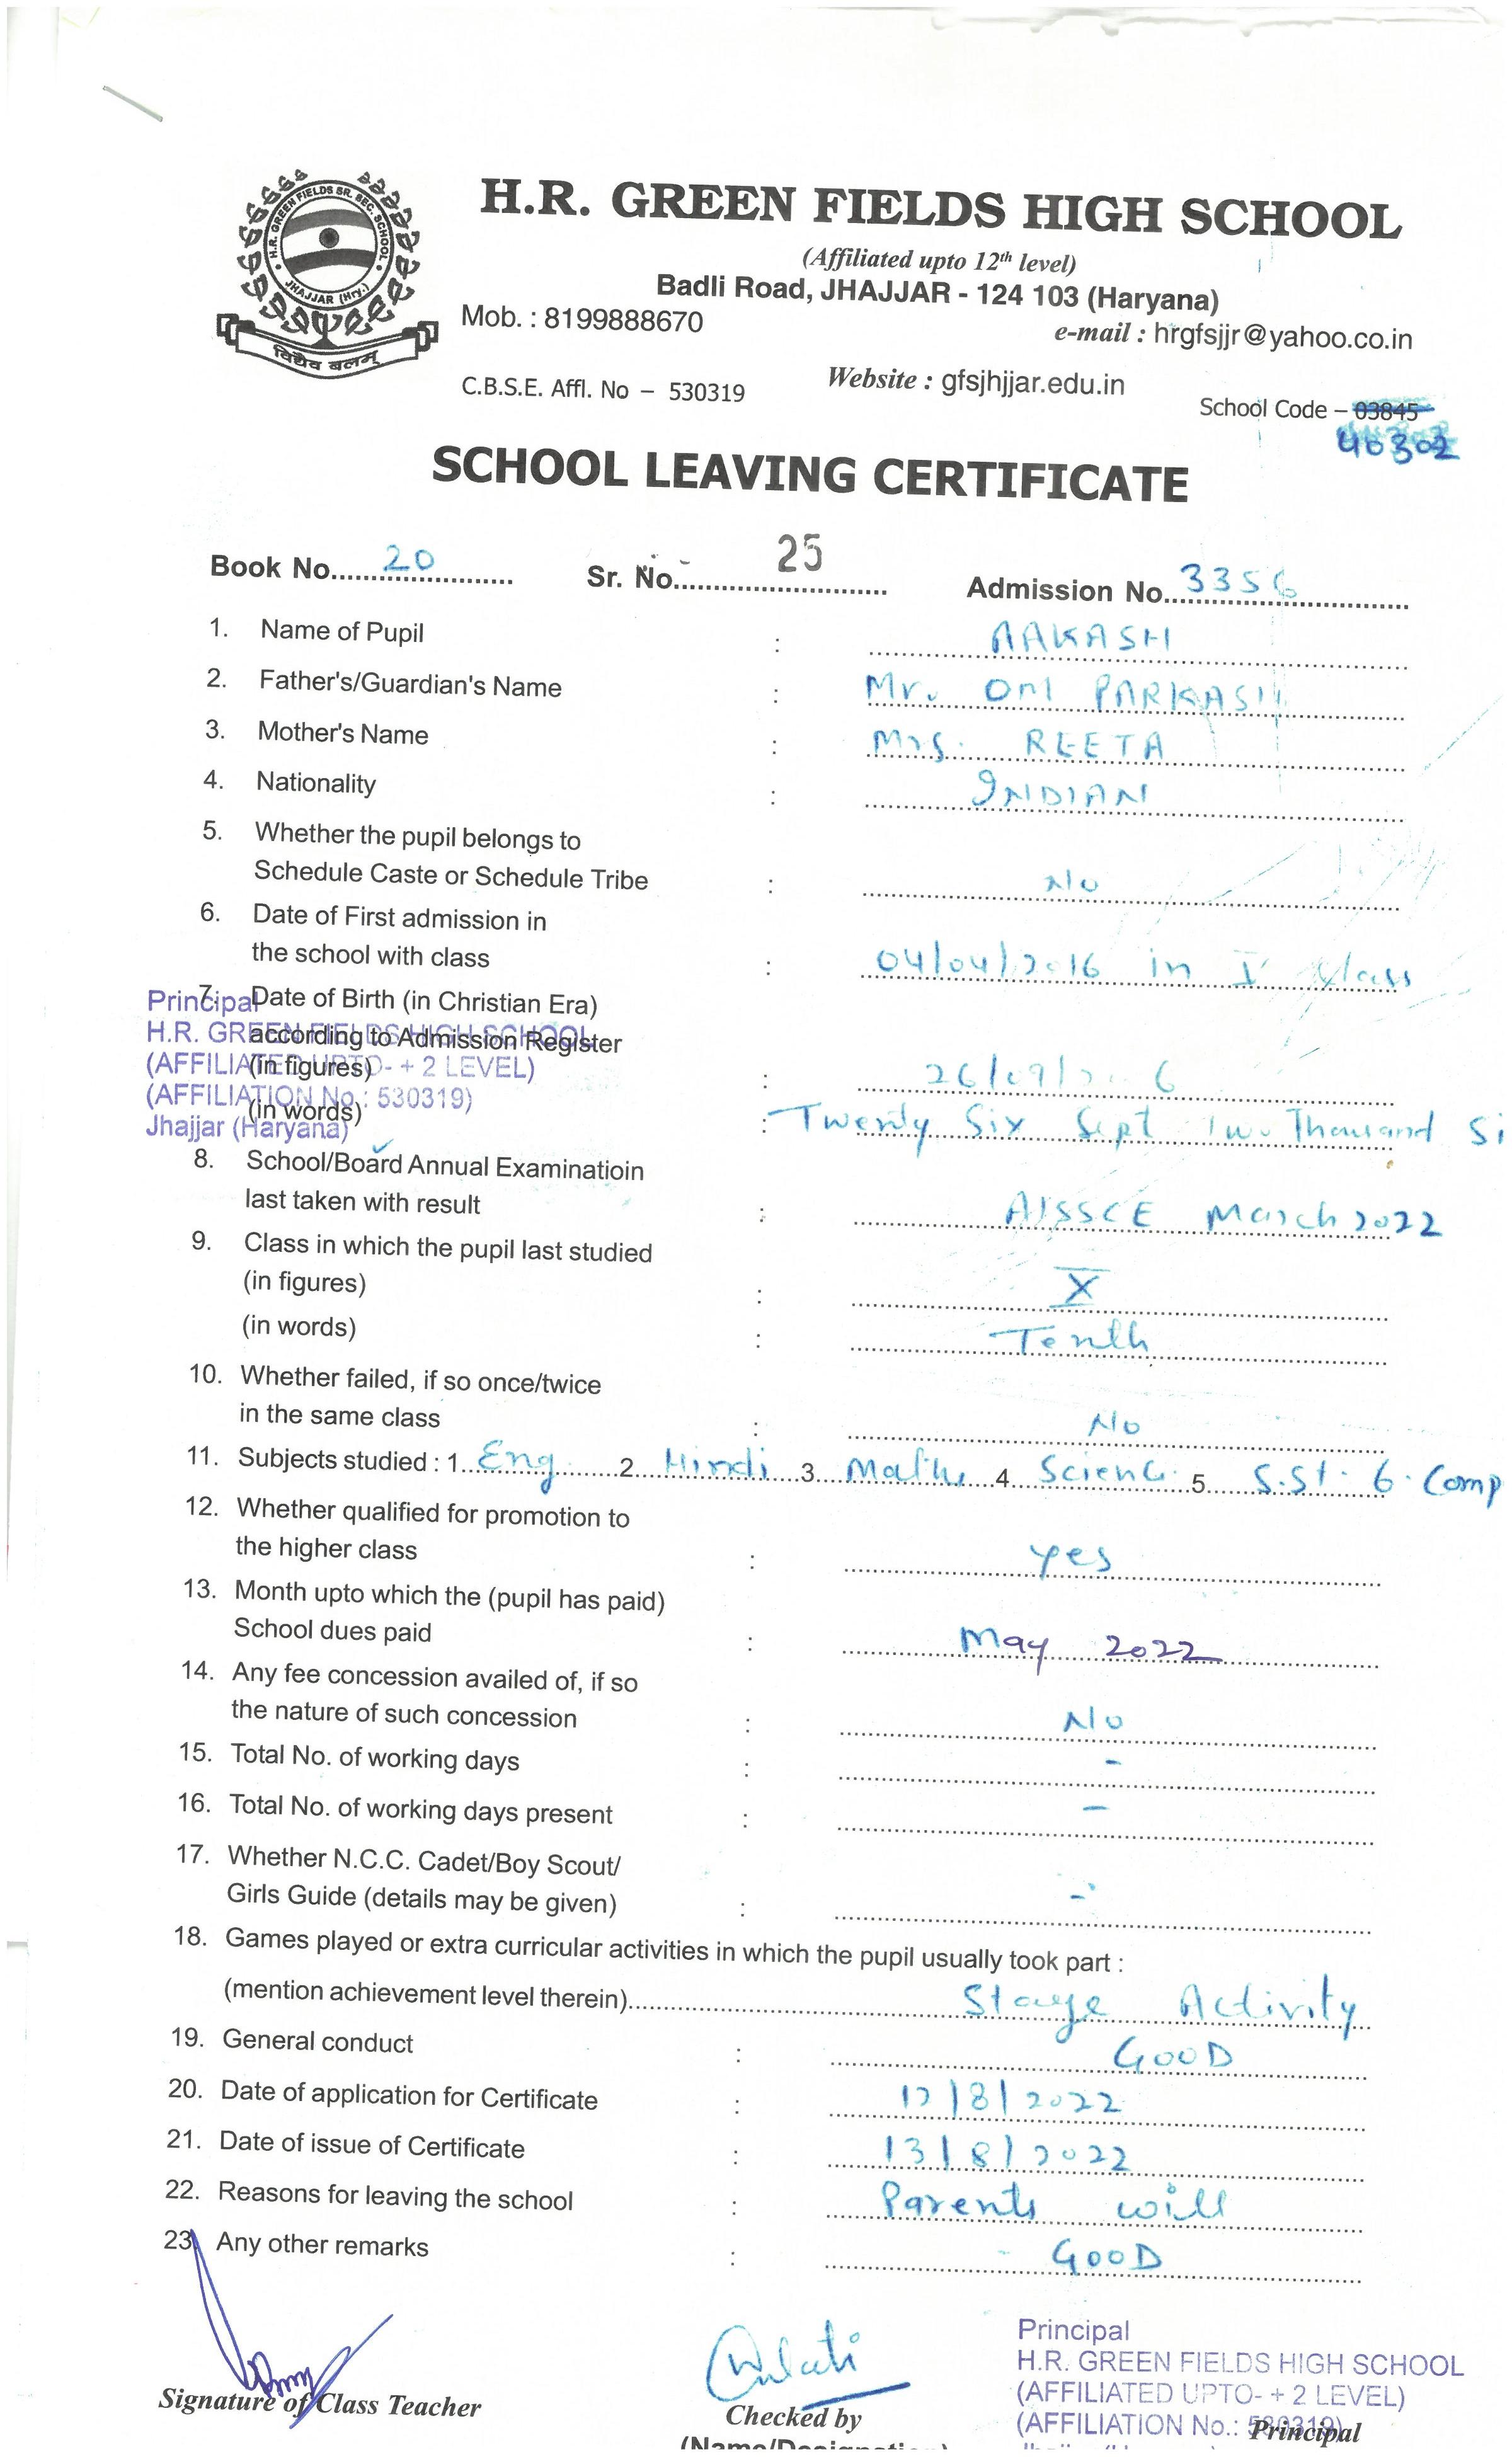 H.R. GREEN FIELDS SR. SEC. SCHOOL
JHAJJAR (Hry.)
विद्यैव बलम्
H.R. GREEN FIELDS HIGH SCHOOL
(Affiliated upto 12th level)
Badli Road, JHAJJAR - 124 103 (Haryana)
Mob. : 8199888670
e-mail : hrgfsjjr@yahoo.co.in
C.B.S.E. Affl. No – 530319
Website : gfsjhjjar.edu.in
School Code – 03845
40302
SCHOOL LEAVING CERTIFICATE
Book No. 20 Sr. No. 25 Admission No. 3356
1. Name of Pupil : AAKASH
2. Father's/Guardian's Name : Mr. OM PARKASH
3. Mother's Name : Mrs. REETA
4. Nationality : INDIAN
5. Whether the pupil belongs to
Schedule Caste or Schedule Tribe : No
6. Date of First admission in
the school with class : 04/04/2016 in class
7. Date of Birth (in Christian Era)
according to Admission Register
(in figures) : 26/09/2006
(in words) : Twenty Six Sept Two Thousand Si
Principal
H.R. GREEN FIELDS HIGH SCHOOL
(AFFILIATED UPTO- + 2 LEVEL)
(AFFILIATION No.: 530319)
Jhajjar (Haryana)
8. School/Board Annual Examinatioin
last taken with result : AISSCE March 2022
9. Class in which the pupil last studied
(in figures) : X
(in words) : Tenth
10. Whether failed, if so once/twice
in the same class : No
11. Subjects studied : 1. Eng 2. Hindi 3. Maths 4. Science 5. S.St. 6. Comp
12. Whether qualified for promotion to
the higher class : yes
13. Month upto which the (pupil has paid)
School dues paid : May 2022
14. Any fee concession availed of, if so
the nature of such concession : No
15. Total No. of working days : -
16. Total No. of working days present : -
17. Whether N.C.C. Cadet/Boy Scout/
Girls Guide (details may be given) : -
18. Games played or extra curricular activities in which the pupil usually took part :
(mention achievement level therein) Stage Activity
19. General conduct : GOOD
20. Date of application for Certificate : 12/8/2022
21. Date of issue of Certificate : 13/8/2022
22. Reasons for leaving the school : Parents will
23. Any other remarks : GOOD
Signature of Class Teacher
Checked by
(Name/Designation)
Principal
H.R. GREEN FIELDS HIGH SCHOOL
(AFFILIATED UPTO- + 2 LEVEL)
(AFFILIATION No.: 530319)
Principal